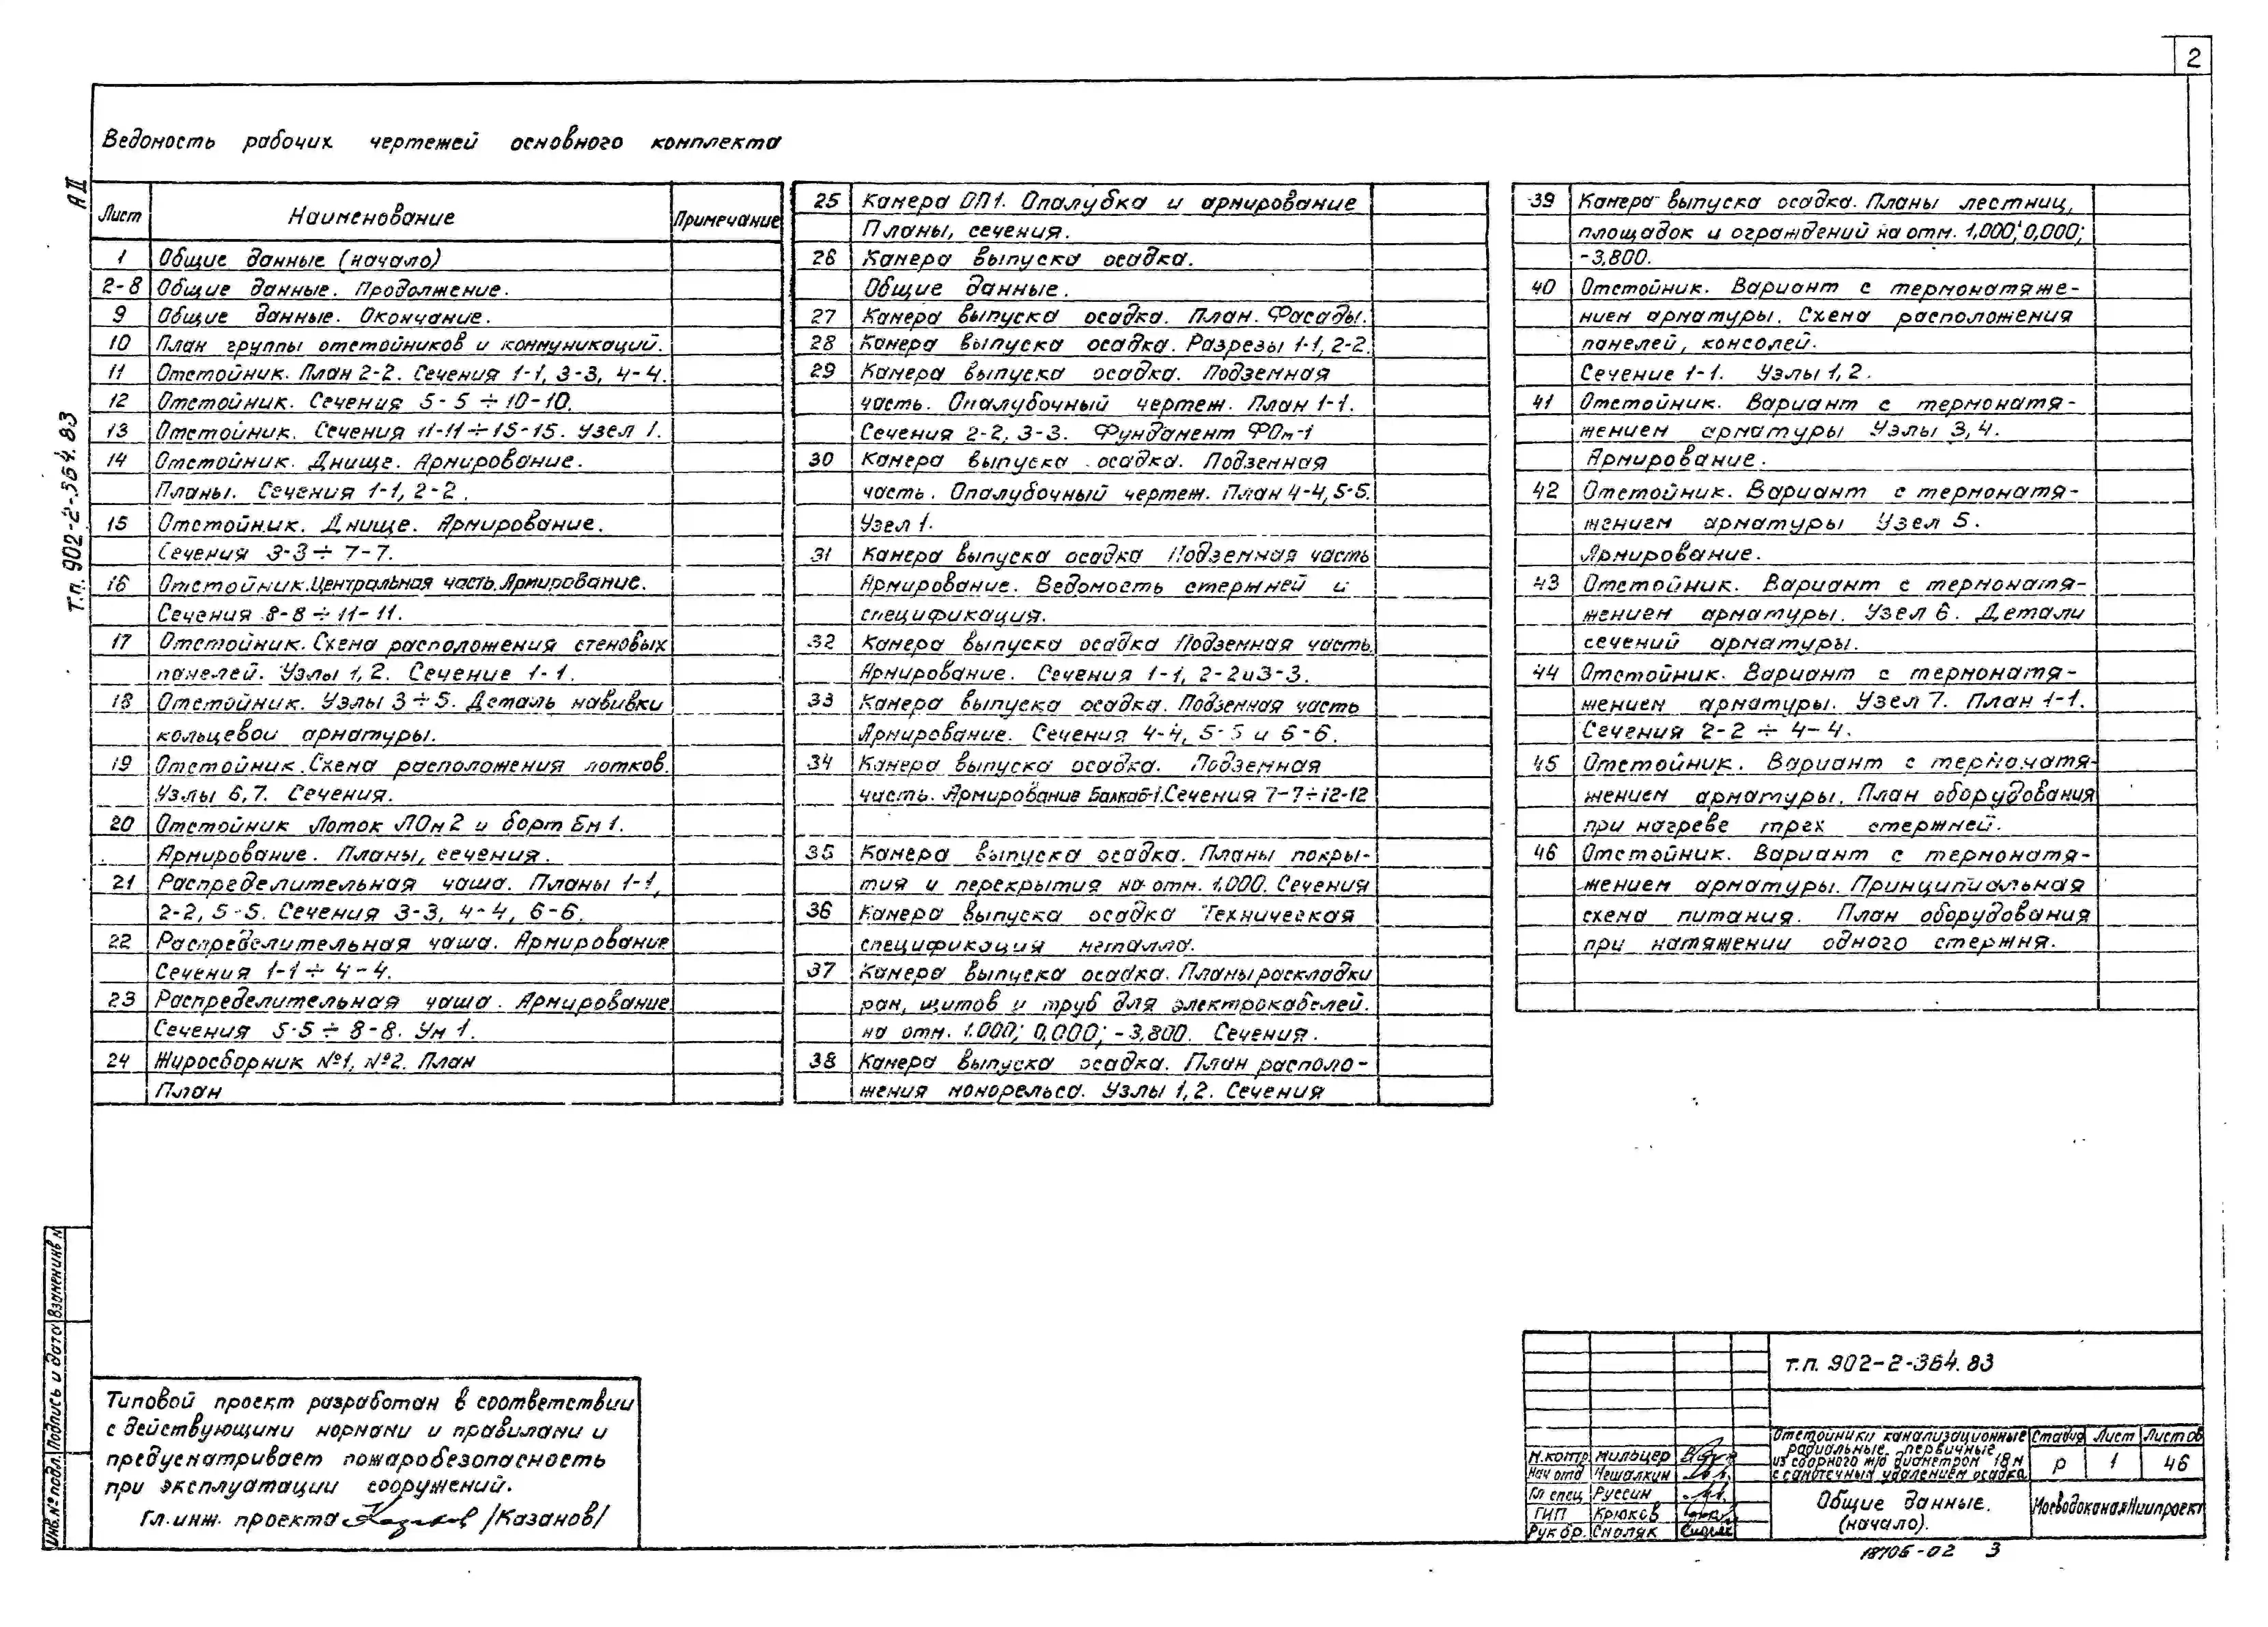 2
Ведомость рабочих чертежей основного комплекта
А II
Т.п. 902-2-364.83
Лист Наименование Примечание
1 Общие данные (начало)
2-8 Общие данные. Продолжение.
9 Общие данные. Окончание.
10 План группы отстойников и коммуникаций.
11 Отстойник. План 2-2. Сечения 1-1, 3-3, 4-4.
12 Отстойник. Сечения 5-5 ÷ 10-10.
13 Отстойник. Сечения 11-11 ÷ 15-15. Узел 1.
14 Отстойник. Днище. Армирование.
Планы. Сечения 1-1, 2-2.
15 Отстойник. Днище. Армирование.
Сечения 3-3 ÷ 7-7.
16 Отстойник. Центральная часть. Армирование.
Сечения 8-8 ÷ 11-11.
17 Отстойник. Схема расположения стеновых
панелей. Узлы 1, 2. Сечение 1-1.
18 Отстойник. Узлы 3 ÷ 5. Деталь навивки
кольцевой арматуры.
19 Отстойник. Схема расположения лотков.
Узлы 6, 7. Сечения.
20 Отстойник Лоток ЛОм2 и борт Бм1.
Армирование. Планы, сечения.
21 Распределительная чаша. Планы 1-1,
2-2, 5-5. Сечения 3-3, 4-4, 6-6.
22 Распределительная чаша. Армирование
Сечения 1-1 ÷ 4-4.
23 Распределительная чаша. Армирование
Сечения 5-5 ÷ 8-8. Ум 1.
24 Жиросборник №1, №2. План
План
25 Камера ОП1. Опалубка и армирование
Планы, сечения.
26 Камера выпуска осадка.
Общие данные.
27 Камера выпуска осадка. План. Фасады.
28 Камера выпуска осадка. Разрезы 1-1, 2-2.
29 Камера выпуска осадка. Подземная
часть. Опалубочный чертеж. План 1-1.
Сечения 2-2, 3-3. Фундамент ФОм-1
30 Камера выпуска осадка. Подземная
часть. Опалубочный чертеж. План 4-4, 5-5.
Узел 1.
31 Камера выпуска осадка Подземная часть
Армирование. Ведомость стержней и
спецификация.
32 Камера выпуска осадка Подземная часть
Армирование. Сечения 1-1, 2-2 и 3-3.
33 Камера выпуска осадка. Подземная часть
Армирование. Сечения 4-4, 5-5 и 6-6.
34 Камера выпуска осадка. Подземная
часть. Армирование Балка Б-1. Сечения 7-7 ÷ 12-12
35 Камера выпуска осадка. Планы покры-
тия и перекрытия на отм. 1.000. Сечения
36 Камера выпуска осадка Техническая
спецификация металла.
37 Камера выпуска осадка. Планы раскладки
рам, щитов и труб для электрокабелей.
на отм. 1.000; 0.000; -3.800. Сечения.
38 Камера выпуска осадка. План располо-
жения монорельса. Узлы 1, 2. Сечения
39 Камера выпуска осадка. Планы лестниц,
площадок и ограждений на отм. 1,000; 0,000;
-3.800.
40 Отстойник. Вариант с термонатяже-
нием арматуры. Схема расположения
панелей, консолей.
Сечение 1-1. Узлы 1, 2.
41 Отстойник. Вариант с термонатя-
жением арматуры Узлы 3, 4.
Армирование.
42 Отстойник. Вариант с термонатя-
жением арматуры Узел 5.
Армирование.
43 Отстойник. Вариант с термонатя-
жением арматуры. Узел 6. Детали
сечений арматуры.
44 Отстойник. Вариант с термонатя-
жением арматуры. Узел 7. План 1-1.
Сечения 2-2 ÷ 4-4.
45 Отстойник. Вариант с термонатя-
жением арматуры. План оборудования
при нагреве трех стержней.
46 Отстойник. Вариант с термонатя-
жением арматуры. Принципиальная
схема питания. План оборудования
при натяжении одного стержня.
Инв.№ подл. Подпись и дата Взамен инв №
Типовой проект разработан в соответствии
с действующими нормами и правилами и
предусматривает пожаробезопасность
при эксплуатации сооружений.
Гл. инж. проекта /Казанов/
т.п. 902-2-364.83
Н.контр. Мильцер
Нач отд Чешалкин
Гл спец Руссин
ГИП Крюков
Рук бр. Смоляк
Отстойники канализационные
радиальные первичные
из сборного ж/б диаметром 18м
с самотечным удалением осадка
Стадия Лист Листов
Р 1 46
Общие данные.
(начало).
МосводоканалНиипроект
18706-02 3